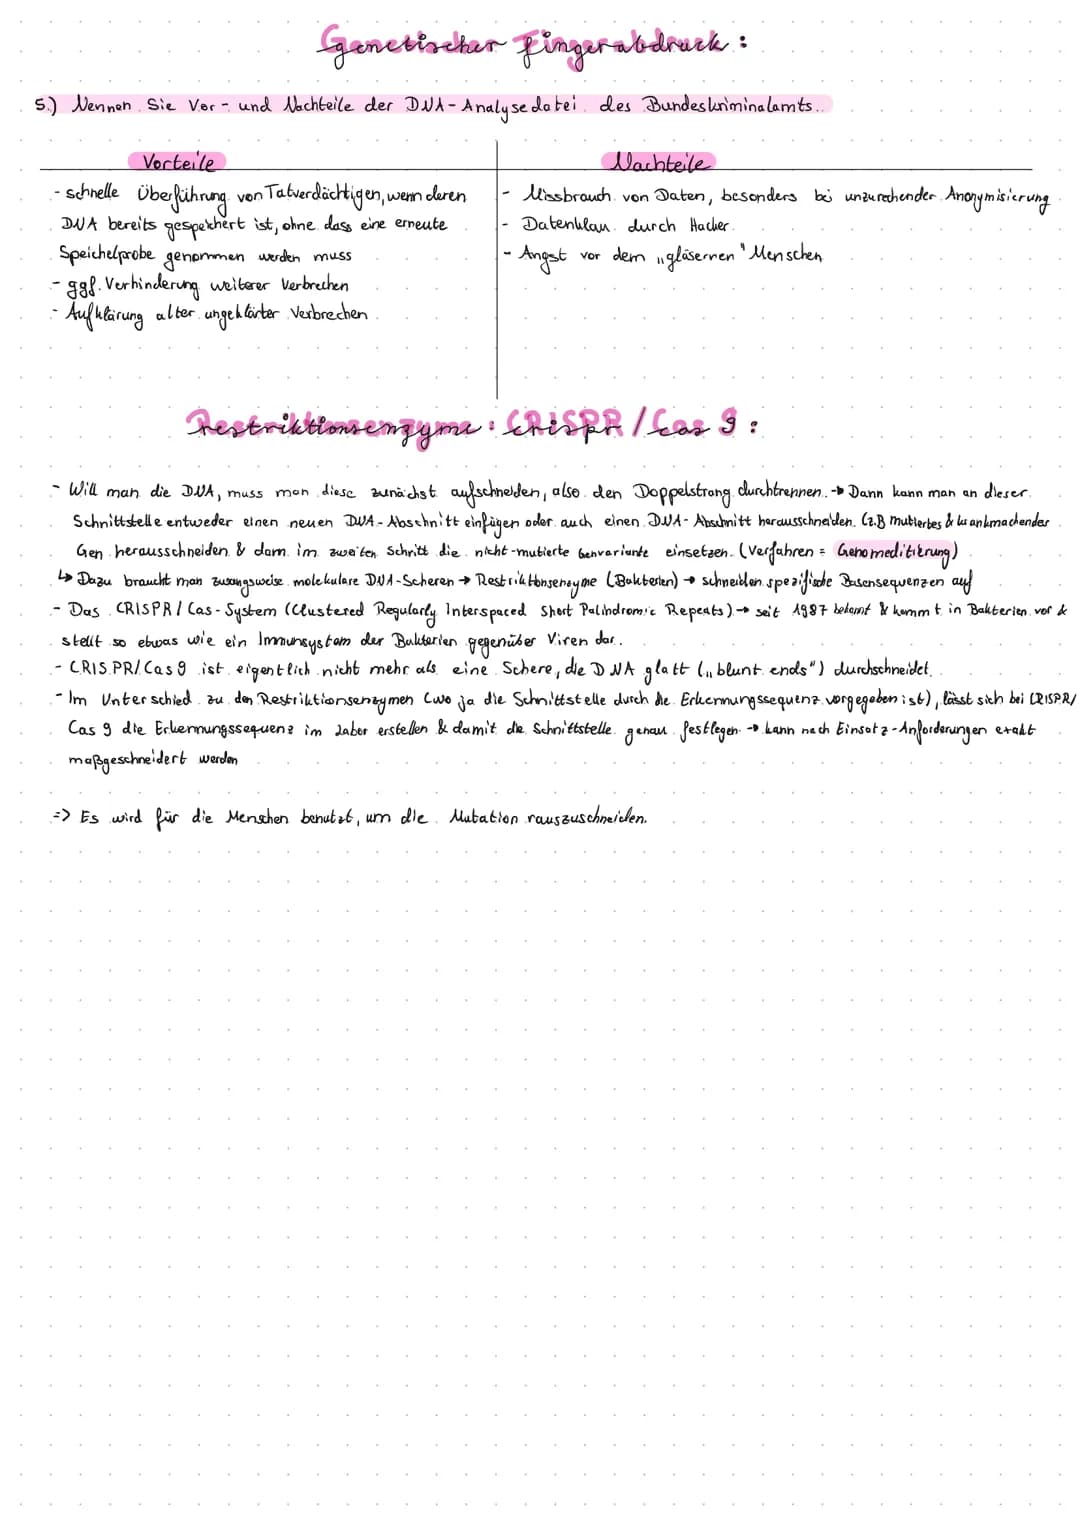 Genetischer Fingerabdruck:
5.) Nennen Sie Vor- und Nachteile der DNA-Analysedatei des Bundeskriminalamts.
Vorteile
Nachteile
- schnelle Überführung von Tatverdächtigen, wenn deren
DNA bereits gespeichert ist, ohne dass eine erneute
Speichelprobe genommen werden muss
- ggf. Verhinderung weiterer Verbrechen
- Aufklärung alter ungeklärter Verbrechen
- Missbrauch von Daten, besonders bei unzureichender Anonymisierung
- Datenklau durch Hacker
- Angst vor dem „gläsernen" Menschen
Restriktionsenzyme: Crispr/Cas 9:
- Will man die DNA, muss man diese zunächst aufschneiden, also den Doppelstrang durchtrennen. → Dann kann man an dieser
Schnittstelle entweder einen neuen DNA-Abschnitt einfügen oder auch einen DNA-Abschnitt herausschneiden. (z.B mutiertes & krankmachendes
Gen herausschneiden & dann im zweiten Schritt die nicht-mutierte Genvariante einsetzen. (Verfahren = Genomeditierung)
↳ Dazu braucht man zwangsweise molekulare DNA-Scheren → Restriktionsenzyme (Bakterien) → schneiden spezifische Basensequenzen auf
- Das CRISPR/Cas-System (Clustered Regularly Interspaced Short Palindromic Repeats) → seit 1987 bekannt & kommt in Bakterien vor &
stellt so etwas wie ein Immunsystem der Bakterien gegenüber Viren dar.
- CRISPR/Cas9 ist eigentlich nicht mehr als eine Schere, die DNA glatt („blunt ends") durchschneidet.
- Im Unterschied zu den Restriktionsenzymen (wo ja die Schnittstelle durch die Erkennungssequenz vorgegeben ist), lässt sich bei CRISPR/
Cas 9 die Erkennungssequenz im Labor erstellen & damit die Schnittstelle genau festlegen → kann nach Einsatz-Anforderungen exakt
maßgeschneidert werden
=> Es wird für die Menschen benutzt, um die Mutation rauszuschneiden.